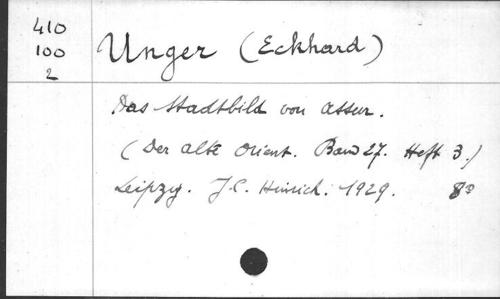 410
100
2
Unger (Eckhard)
Das Stadtbild von Assur.
(Der alte Orient. Band 27. Heft 3.)
Leipzig. J.C. Hinrich. 1929. 8°